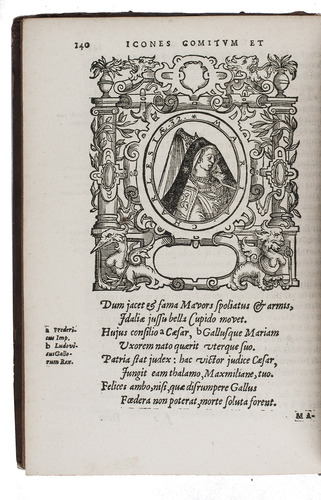 140 ICONES COMITVM ET
Dum jacet & fama Mavors spoliatus & armis,
Idaliæ jussu bella Cupido movet.
Hujus consilio a Cæsar, b Gallusque Mariam
Uxorem nato quærit uterque suo.
Patria stat judex: hac victor judice Cæsar,
Jungit eam thalamo, Maxmiliane, tuo.
Felices ambo, nisi, quæ disrumpere Gallus
Fœdera non poterat, morte soluta forent.
a Frederi-
cus Imp.
b Ludovi-
cus Gallo-
rum Rex.
MA-